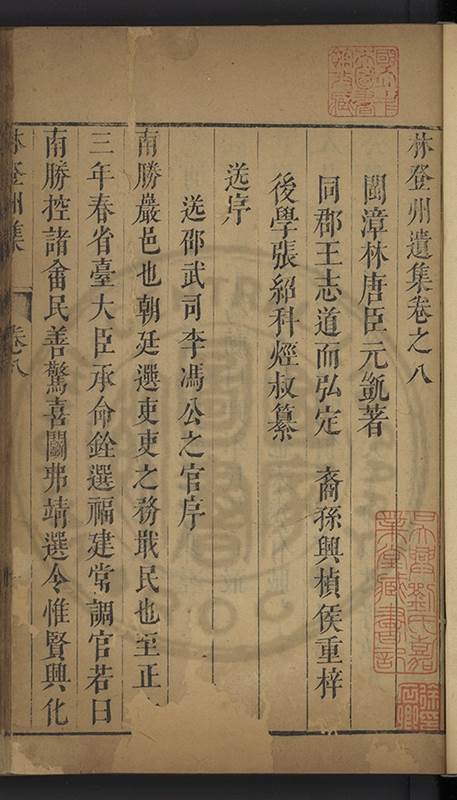 林登州遺集卷之八
閩漳林唐臣元凱著
同郡王志道而弘定 裔孫興楨侯重梓
後學張紹科烴叔纂
送序
送邵武司李馮公之官序
南勝嚴邑也朝廷選吏吏之務戢民也至正
三年春省臺大臣承命銓選福建常調官若曰
南勝控諸畲民善驚喜鬬弗靖選令惟賢興化
林登州集 卷八